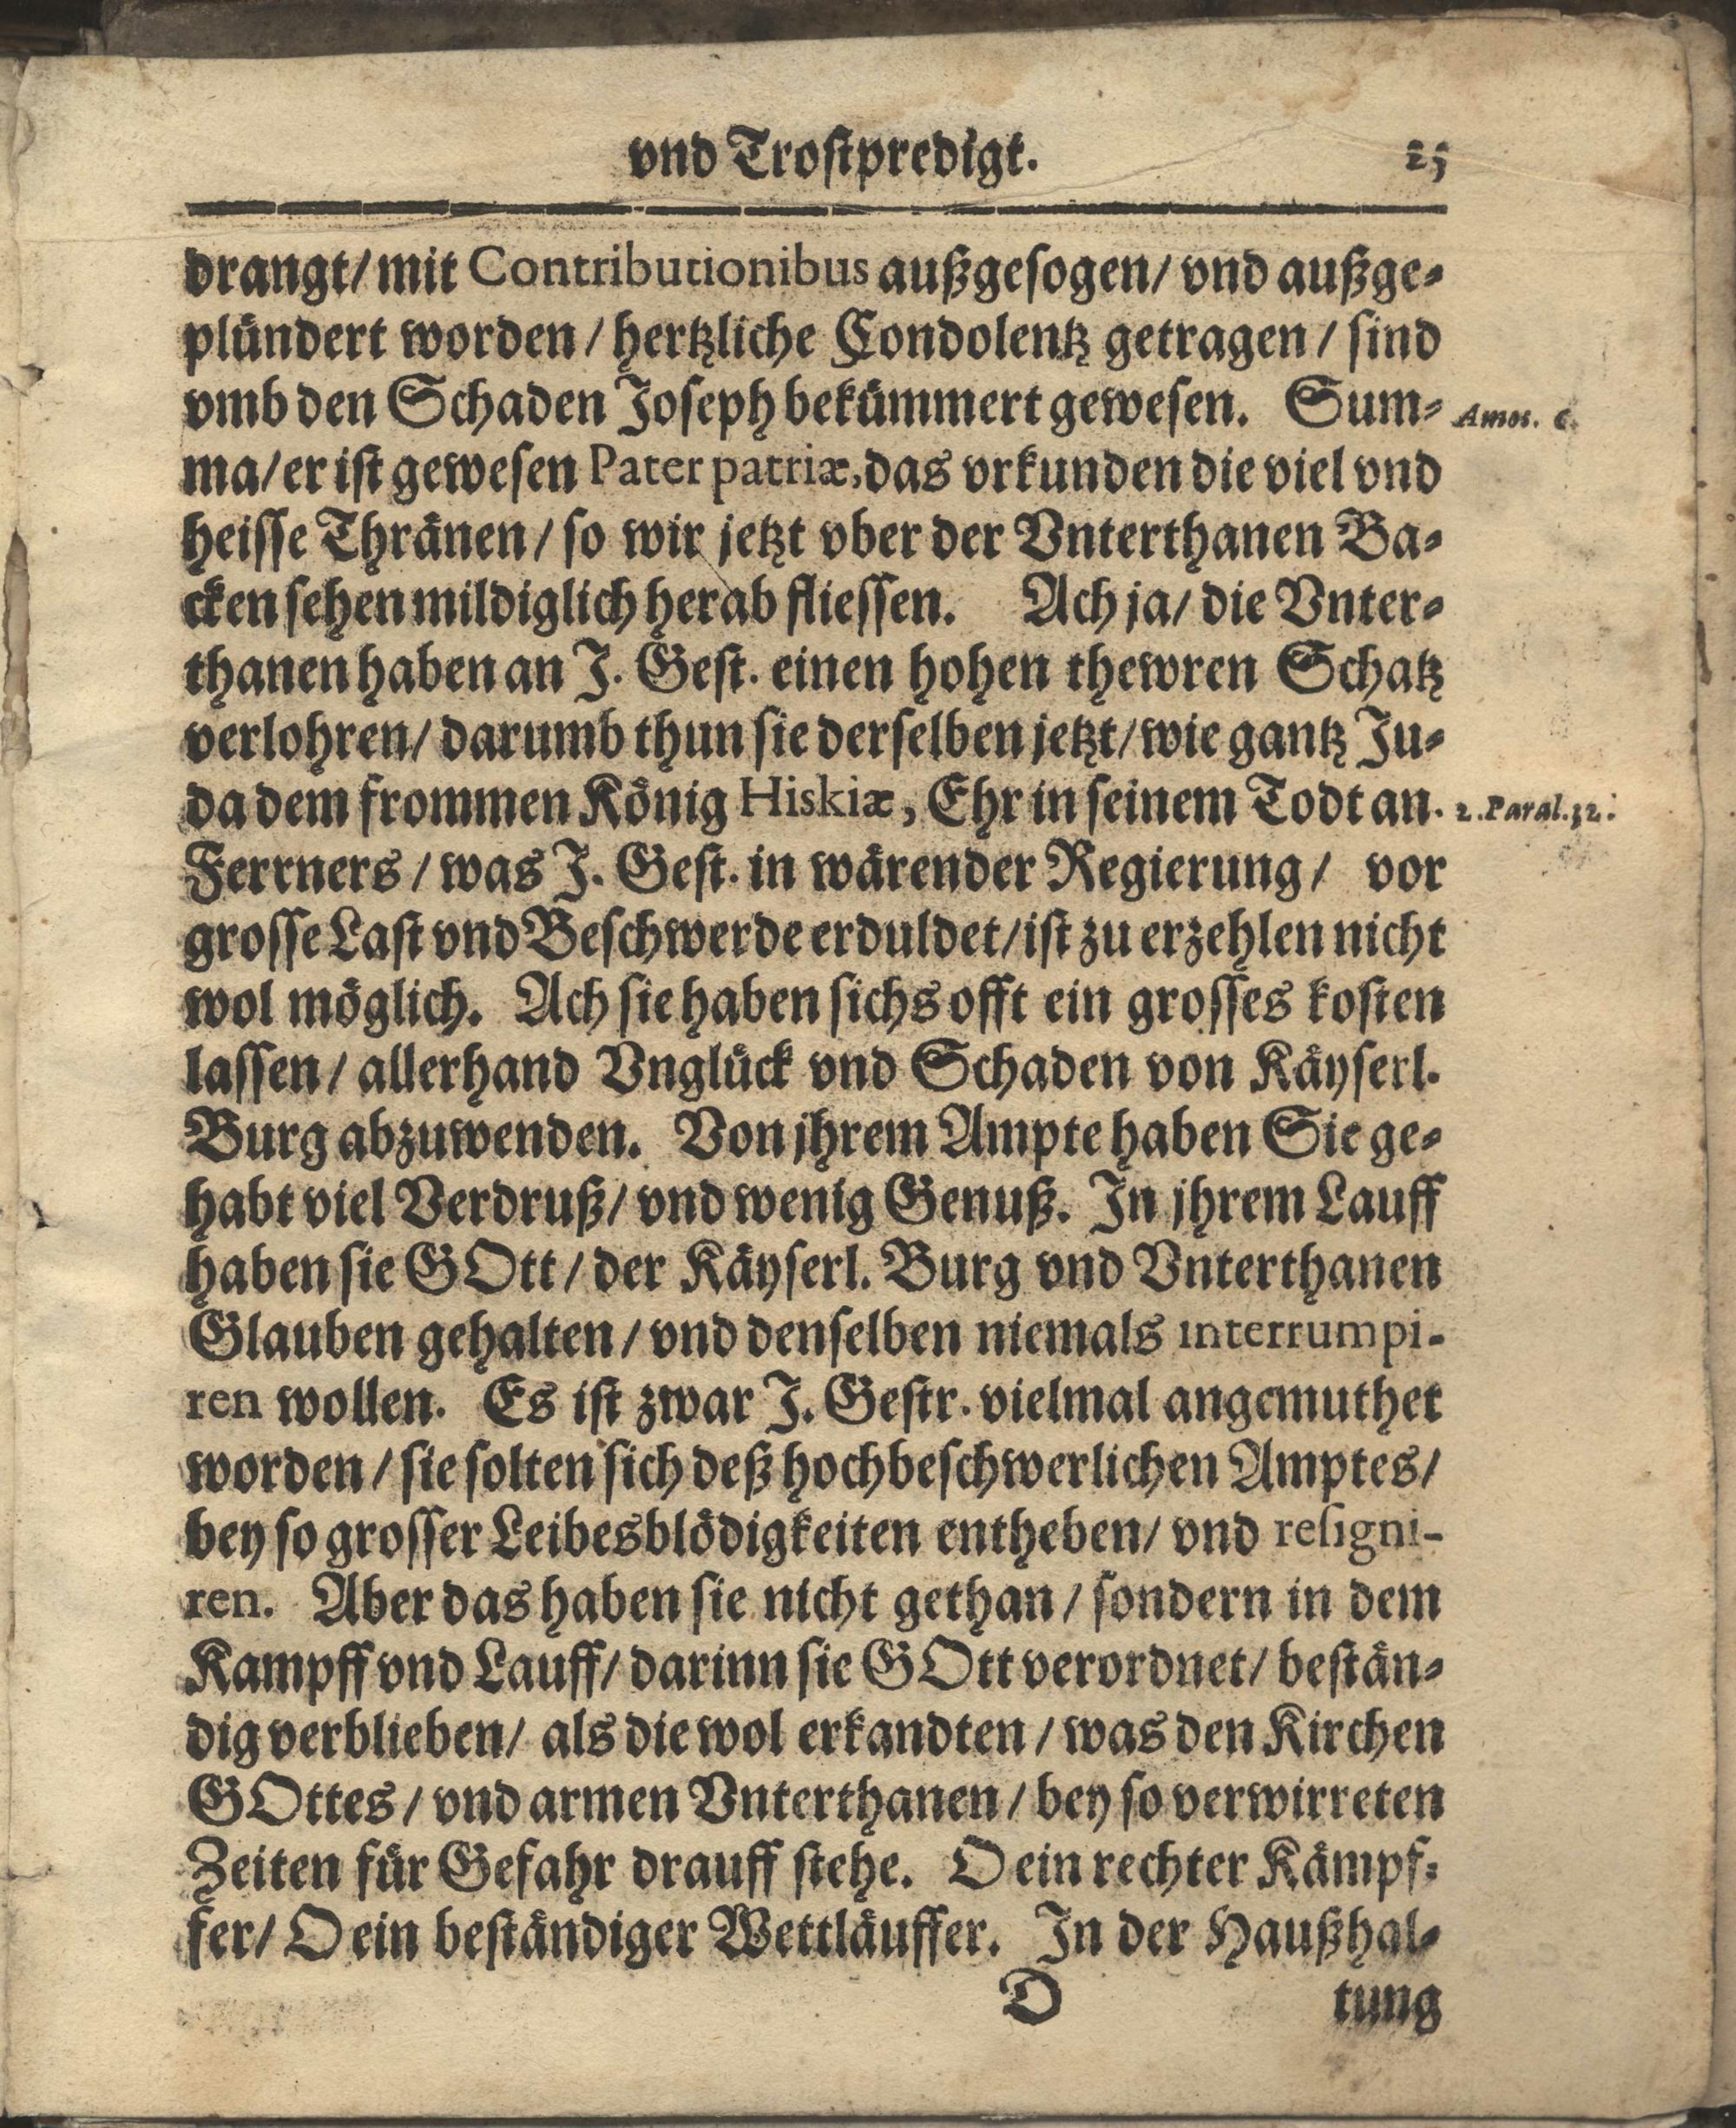 vnd Trostpredigt. 25
drangt/ mit Contributionibus außgesogen/ vnd außge-
plündert worden / hertzliche Condolentz getragen / sind
vmb den Schaden Joseph bekümmert gewesen. Sum- Amos. 6.
ma/ er ist gewesen Pater patriæ, das vrkunden die viel vnd
heisse Thränen / so wir jetzt vber der Vnterthanen Ba-
cken sehen mildiglich herab fliessen. Ach ja/ die Vnter-
thanen haben an J. Gest. einen hohen thewren Schatz
verlohren/ darumb thun sie derselben jetzt/ wie gantz Ju-
da dem frommen König Hiskiæ, Ehr in seinem Todt an. 2. Paral. 32.
Ferrners / was J. Gest. in wärender Regierung / vor
grosse Last vnd Beschwerde erduldet/ ist zu erzehlen nicht
wol möglich. Ach sie haben sichs offt ein grosses kosten
lassen / allerhand Vnglück vnd Schaden von Käyserl.
Burg abzuwenden. Von jhrem Ampte haben Sie ge-
habt viel Verdruß/ vnd wenig Genuß. In jhrem Lauff
haben sie GOtt / der Käyserl. Burg vnd Vnterthanen
Glauben gehalten / vnd denselben niemals interrumpi-
ren wollen. Es ist zwar J. Gestr. vielmal angemuthet
worden / sie solten sich deß hochbeschwerlichen Amptes/
bey so grosser Leibesblödigkeiten entheben/ vnd resigni-
ren. Aber das haben sie nicht gethan / sondern in dem
Kampff vnd Lauff/ darinn sie GOtt verordnet/ bestän-
dig verblieben/ als die wol erkandten / was den Kirchen
GOttes / vnd armen Vnterthanen / bey so verwirreten
Zeiten für Gefahr drauff stehe. O ein rechter Kämpf-
fer/ O ein beständiger Wettläuffer. In der Haußhal-
D tung